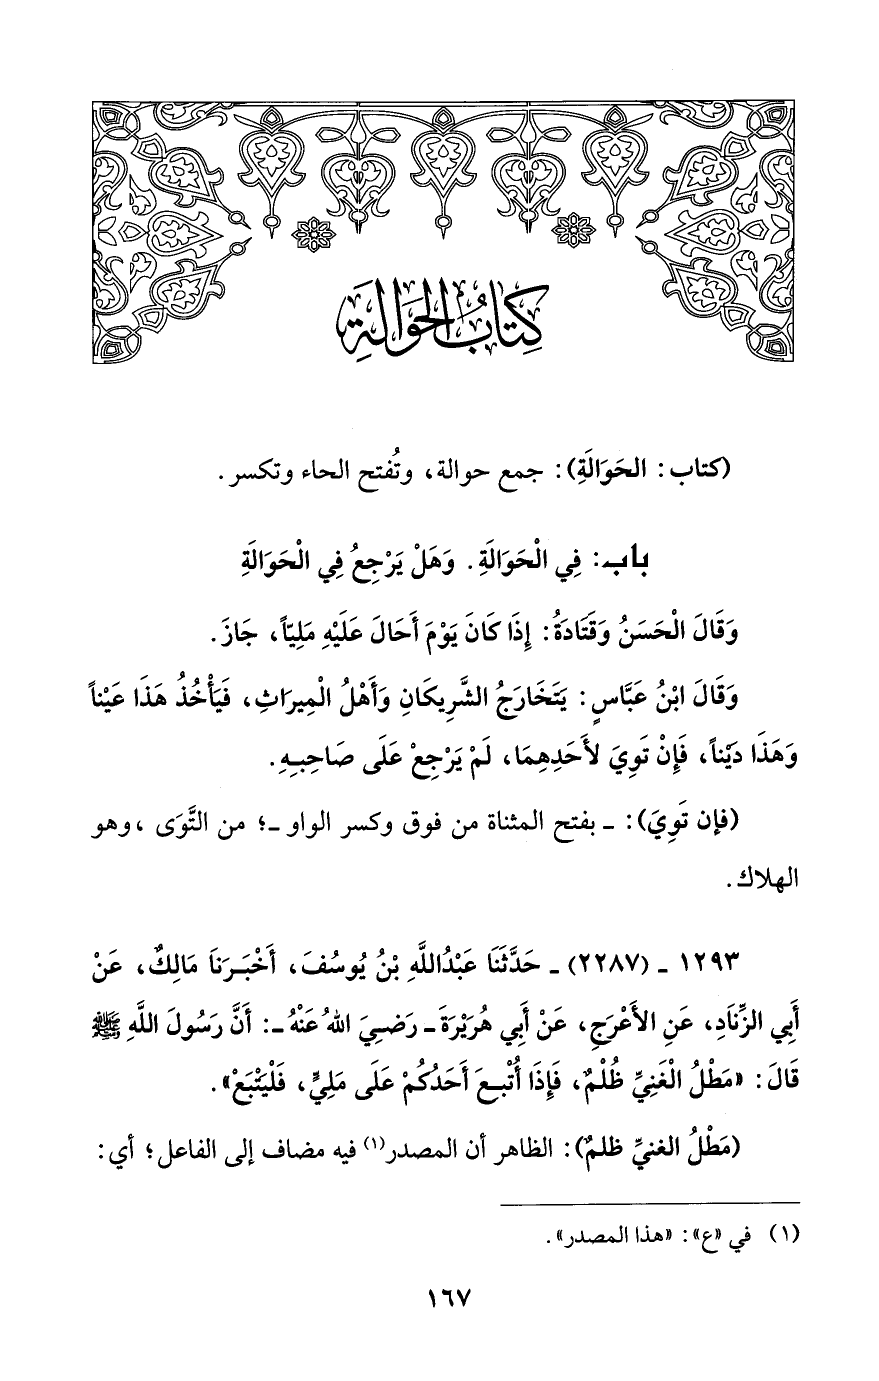 كِتَابُ الحَوَالَةِ
(كتاب: الحَوَالَةِ): جمع حوالة، وتُفتح الحاء وتكسر.
باب: فِي الْحَوَالَةِ. وَهَلْ يَرْجِعُ فِي الْحَوَالَةِ
وَقَالَ الْحَسَنُ وَقَتَادَةُ: إِذَا كَانَ يَوْمَ أَحَالَ عَلَيْهِ مَلِيّاً، جَازَ.
وَقَالَ ابْنُ عَبَّاسٍ: يَتَخَارَجُ الشَّرِيكَانِ وَأَهْلُ الْمِيرَاثِ، فَيَأْخُذُ هَذَا عَيْناً
وَهَذَا دَيْناً، فَإِنْ تَوِيَ لأَحَدِهِمَا، لَمْ يَرْجِعْ عَلَى صَاحِبِهِ.
(فإن تَوِيَ): ـ بفتح المثناة من فوق وكسر الواو ـ؛ من التَّوَى ،وهو
الهلاك.
١٢٩٣ ـ (٢٢٨٧) ـ حَدَّثَنَا عَبْدُاللَّهِ بْنُ يُوسُفَ، أَخْبَرَنَا مَالِكٌ، عَنْ
أَبِي الزِّنَادِ، عَنِ الأَعْرَجِ، عَنْ أَبِي هُرَيْرَةَ ـ رَضِيَ اللهُ عَنْهُ ـ: أَنَّ رَسُولَ اللَّهِ ﷺ
قَالَ: «مَطْلُ الْغَنِيِّ ظُلْمٌ، فَإِذَا أُتْبِعَ أَحَدُكُمْ عَلَى مَلِيٍّ، فَلْيَتْبَعْ».
(مَطْلُ الغنيِّ ظلمٌ): الظاهر أن المصدر(١) فيه مضاف إلى الفاعل؛ أي:
(١) في «ع»: «هذا المصدر».
١٦٧